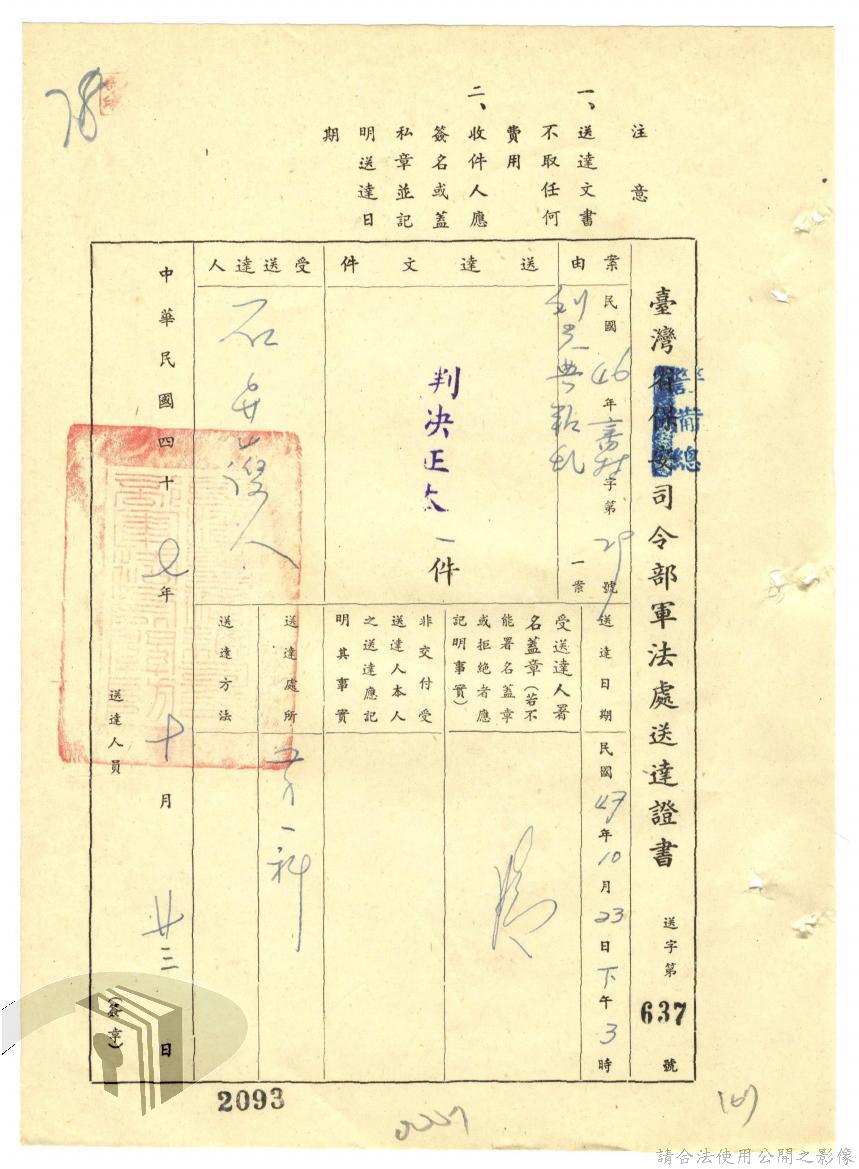 注意
一、送達文書
不取任何
費用
二、收件人應
簽名或蓋
私章並記
明送達日
期
臺灣省保安司令部軍法處送達證書
警備總
送字第637號
案由
民國46年審特字第29號
叛亂
一案
送達文件
判决正本一件
受送達人
石
送達日期
民國47年10月23日下午3時
受送達人署
名蓋章(若不
能署名蓋章
或拒絕者應
記明事實)
非交付受
送達人本人
之送達應記
明其事實
送達處所
送達方法
中華民國四十七年十月廿三日
送達人員
(簽章)
2093
請合法使用公開之影像